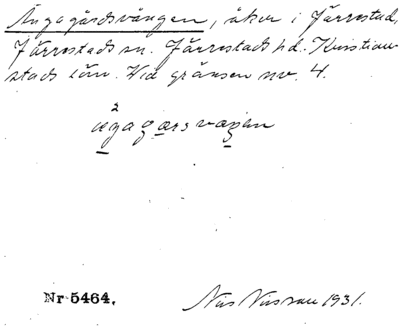 Ängagårdsvången, åker i Järrestad,
Järrestads sn. Järrestads hd. Kristian
stads län. Vid gränsen nv. 4.
Nr 5464.
Nils Nilsson 1931.